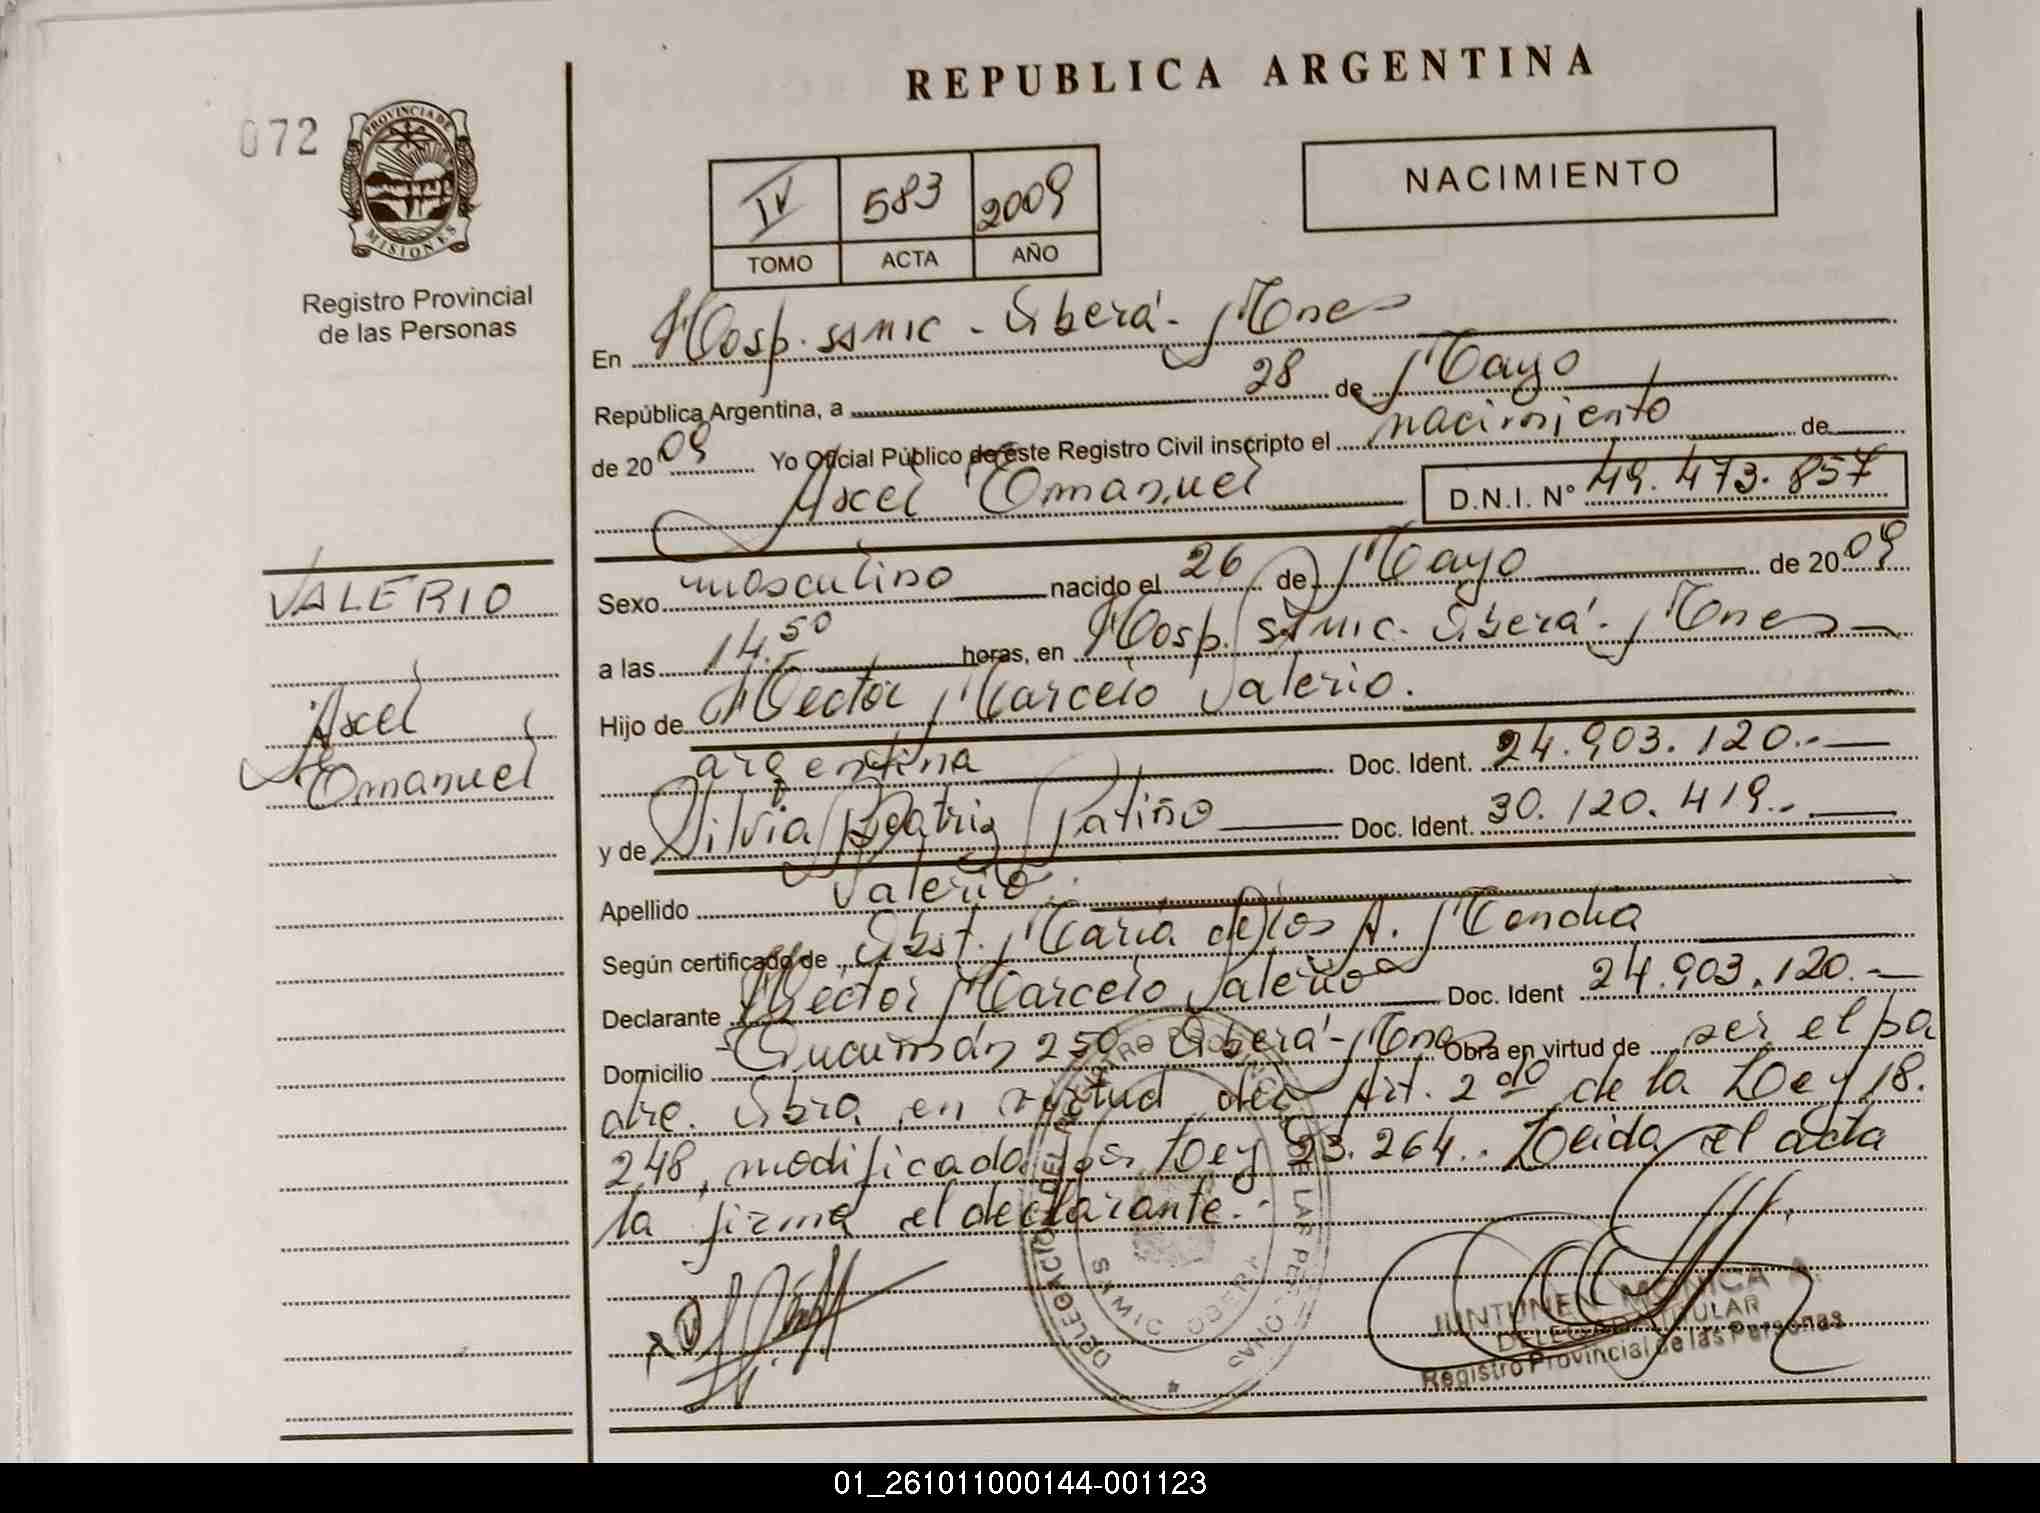 REPUBLICA ARGENTINA
072
PROVINCIA DE
MISIONES
Registro Provincial
de las Personas
IV 583 2009
TOMO ACTA AÑO
NACIMIENTO
En Hosp. SSMIC - Oberá - Mnes
República Argentina, a 28 de Mayo
de 2009 Yo Oficial Público de este Registro Civil inscripto el nacimiento de
Axel Emanuel D.N.I. N° 49.473.857
VALERIO
Axel
Emanuel
Sexo masculino nacido el 26 de Mayo de 2009
a las 14.50 horas, en Hosp. SSMIC. Oberá - Mnes
Hijo de Héctor Marcelo Valerio.
argentina Doc. Ident. 24.903.120.-
y de Silvia Beatriz Patiño Doc. Ident. 30.120.419.-
Apellido Valerio.
Según certificado de Obst. María de los A.
Declarante Héctor Marcelo Valerio Doc. Ident 24.903.120.-
Domicilio Tucumán 250 Oberá - Mnes Obra en virtud de ser el pa
dre. Obra en virtud del Art. 2do de la Ley 18.
248, modificada por Ley 23.264.. Leida el acta
la firma el declarante.-
DELEGACION DEL REGISTRO PROVINCIAL DE LAS PERSONAS
SAMIC OBERA
JUNTUNEN MONICA A.
DELEGADA TITULAR
Registro Provincial de las Personas
01_261011000144-001123